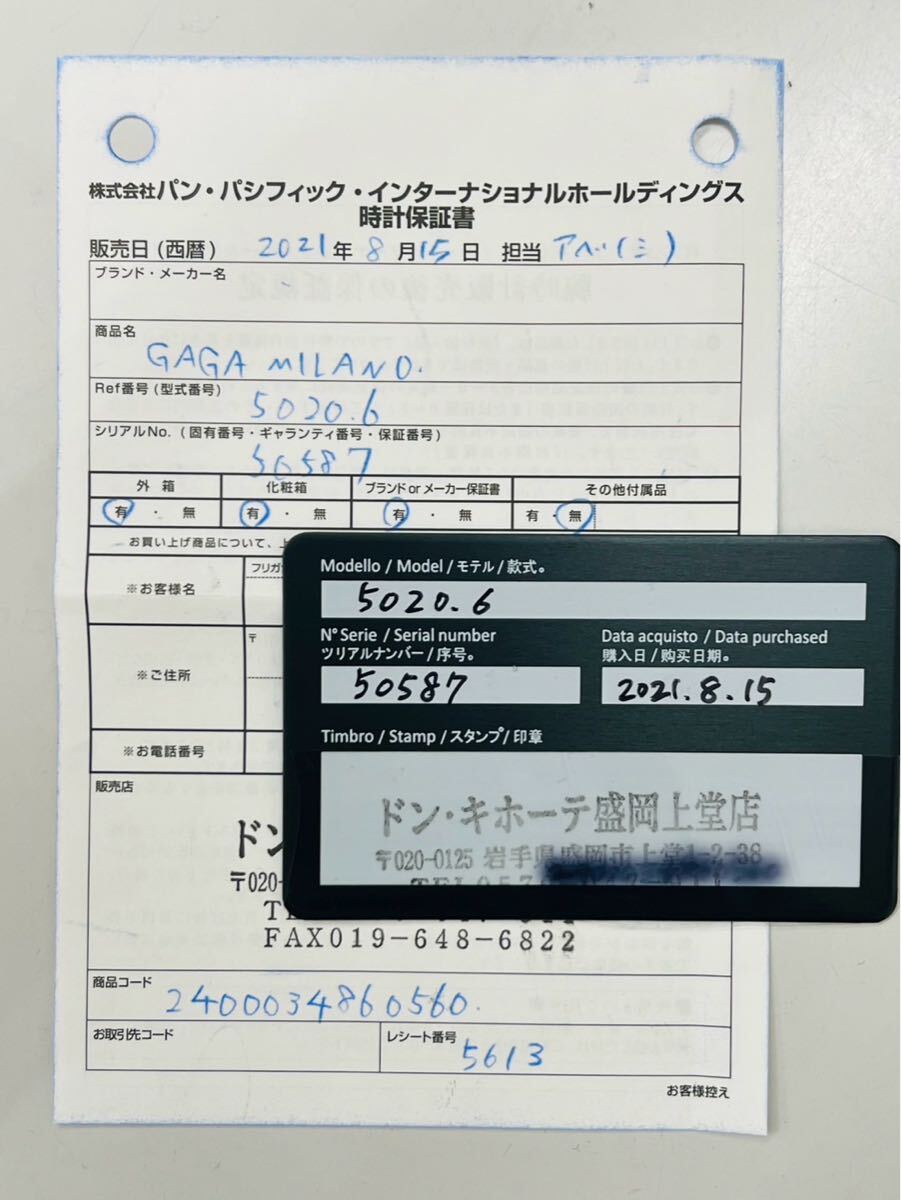 株式会社パン・パシフィック・インターナショナルホールディングス
時計保証書
販売日(西暦) 2021年8月15日 担当 アベ(ミ)
ブランド・メーカー名
商品名
GAGA MILANO.
Ref番号(型式番号)
5020.6
シリアルNo.(固有番号・ギャランティ番号・保証番号)
50587
外箱 化粧箱 ブランドorメーカー保証書 その他付属品
有・無 有・無 有・無 有・無
お買い上げ商品について、
※お客様名
フリガ
※ご住所
〒
※お電話番号
販売店
ドン
〒020-
FAX019-648-6822
商品コード
2400034860560.
お取引先コード
レシート番号
5613
お客様控え
Modello / Model / モテル / 款式。
5020.6
N° Serie / Serial number
ツリアルナンバー / 序号。
50587
Data acquisto / Data purchased
購入日 / 购买日期。
2021.8.15
Timbro / Stamp / スタンプ / 印章
ドン・キホーテ盛岡上堂店
〒020-0125 岩手県盛岡市上堂1-2-38